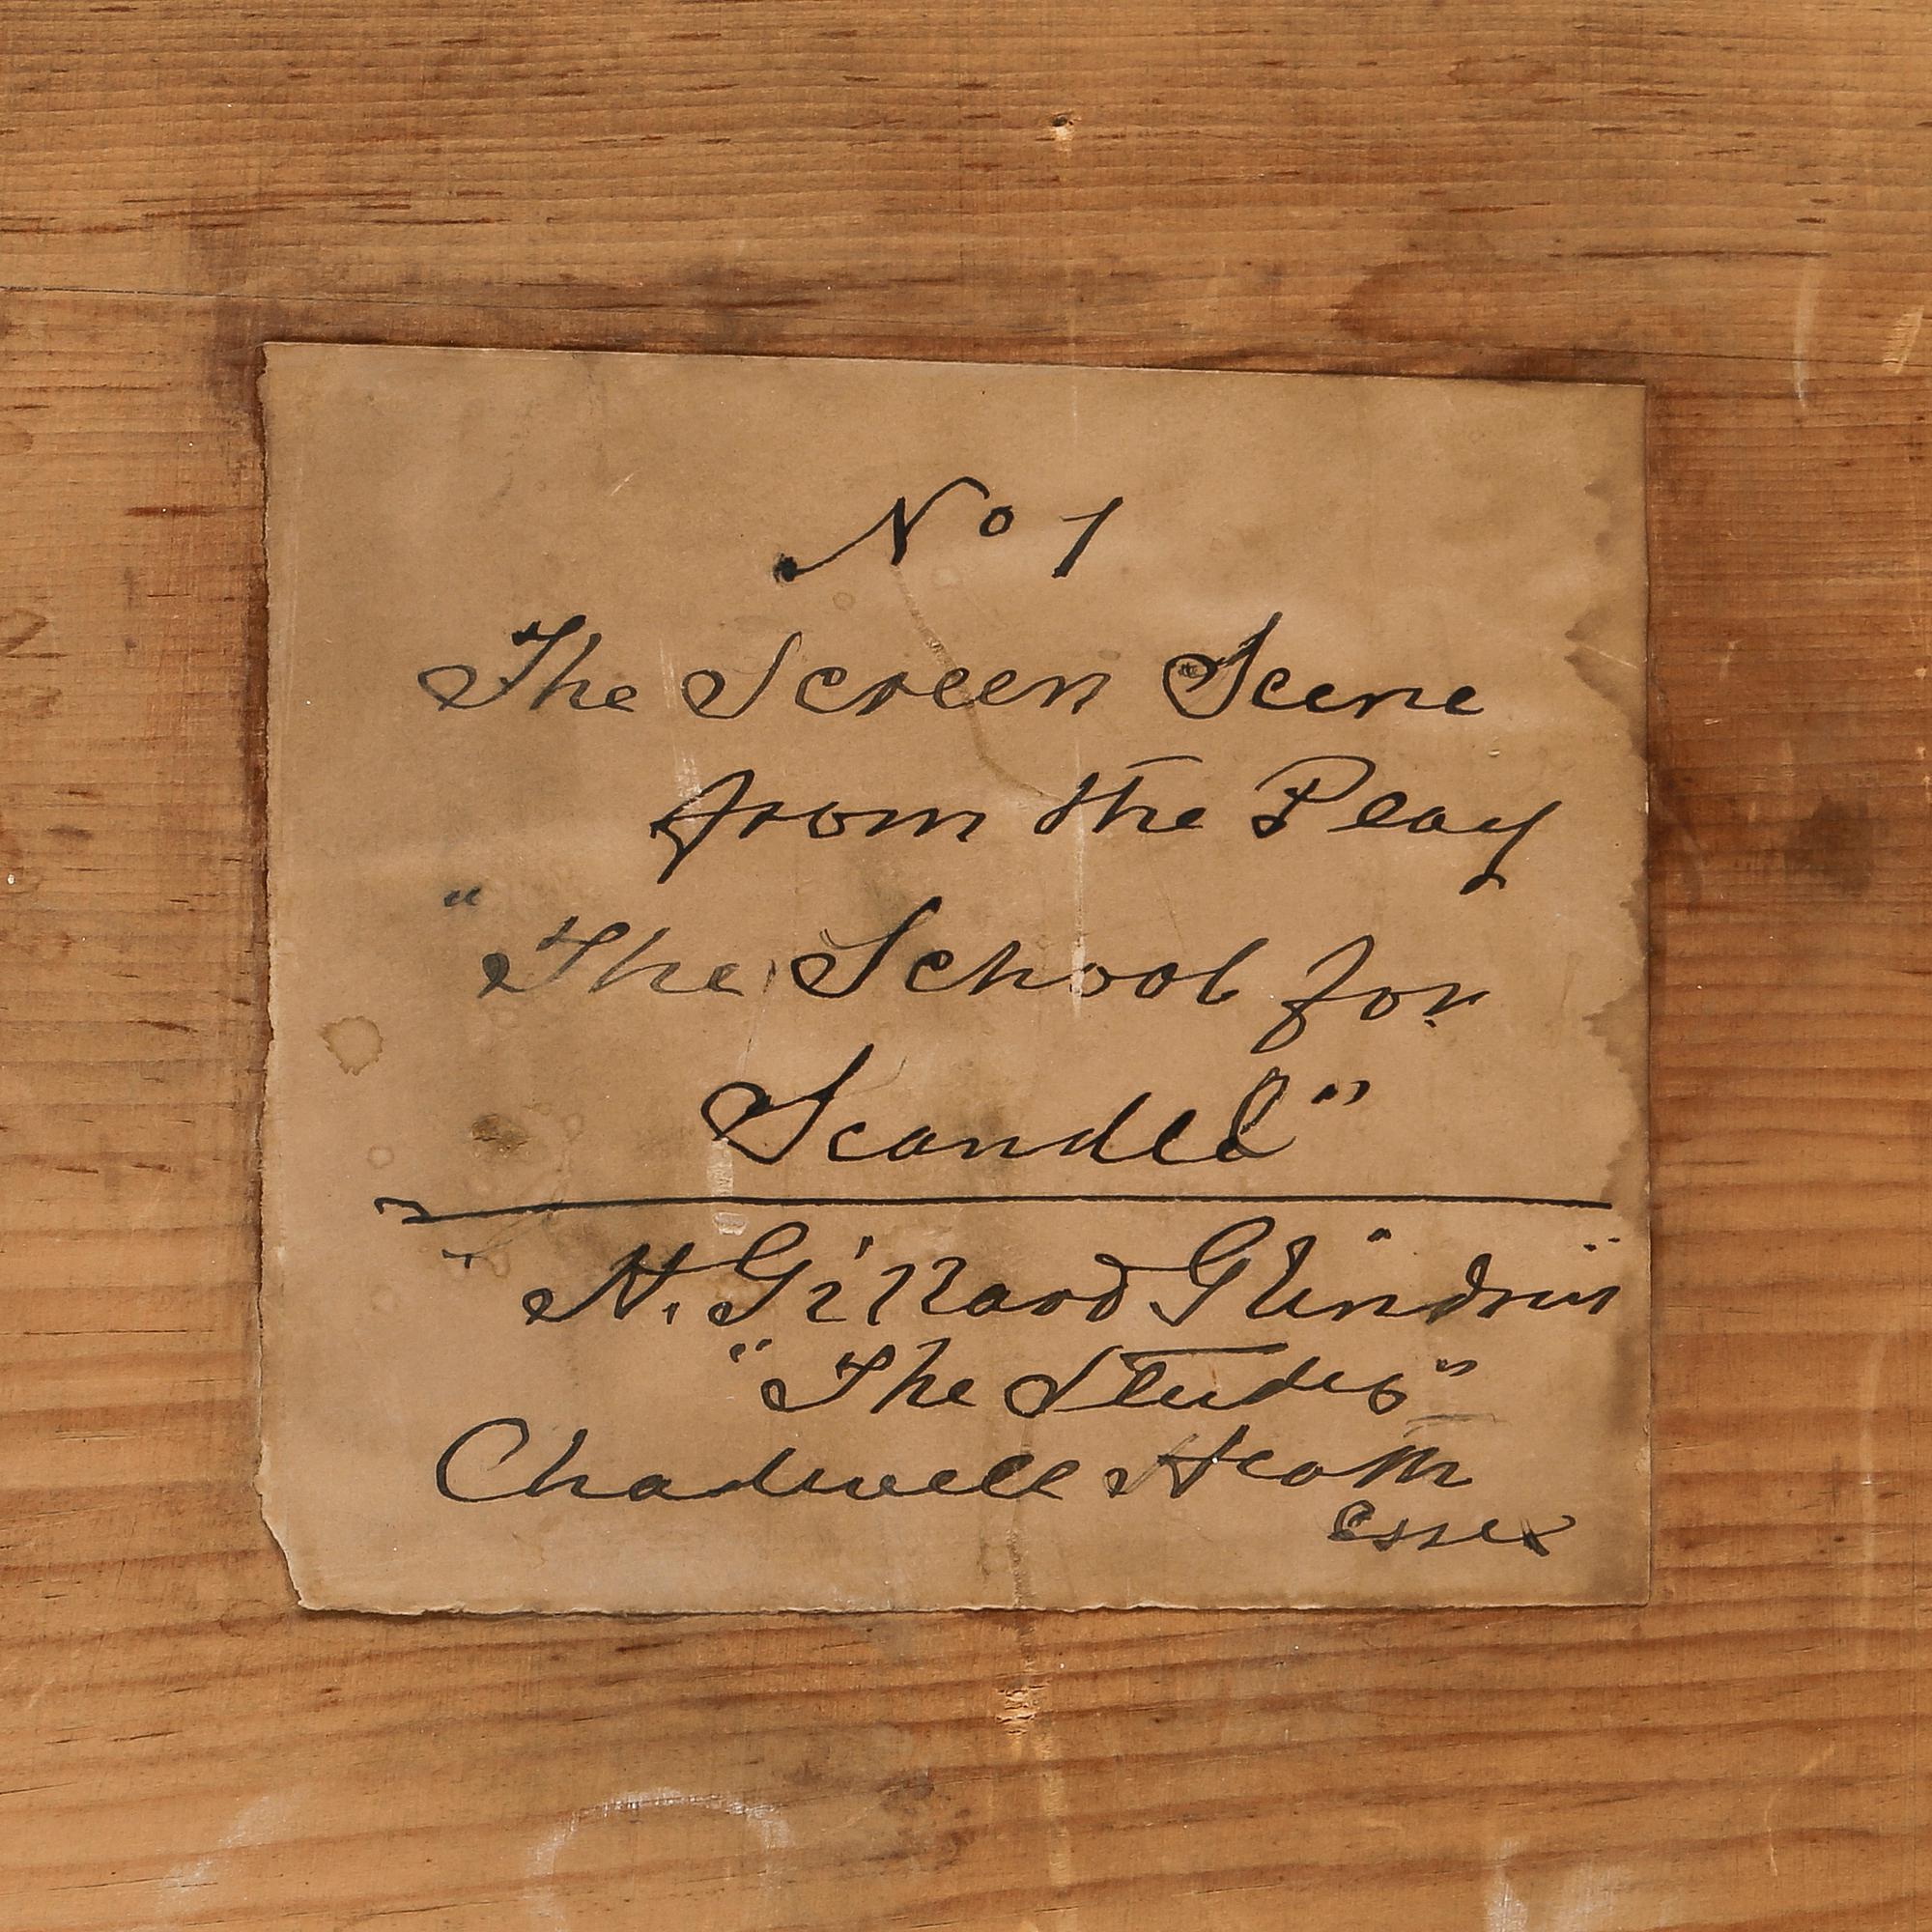 No 1
The Screen Scene
from the Play
"The School for
Scandel"
H. Gillard Glindoni
"The Studio"
Chadwell Heath
Essex